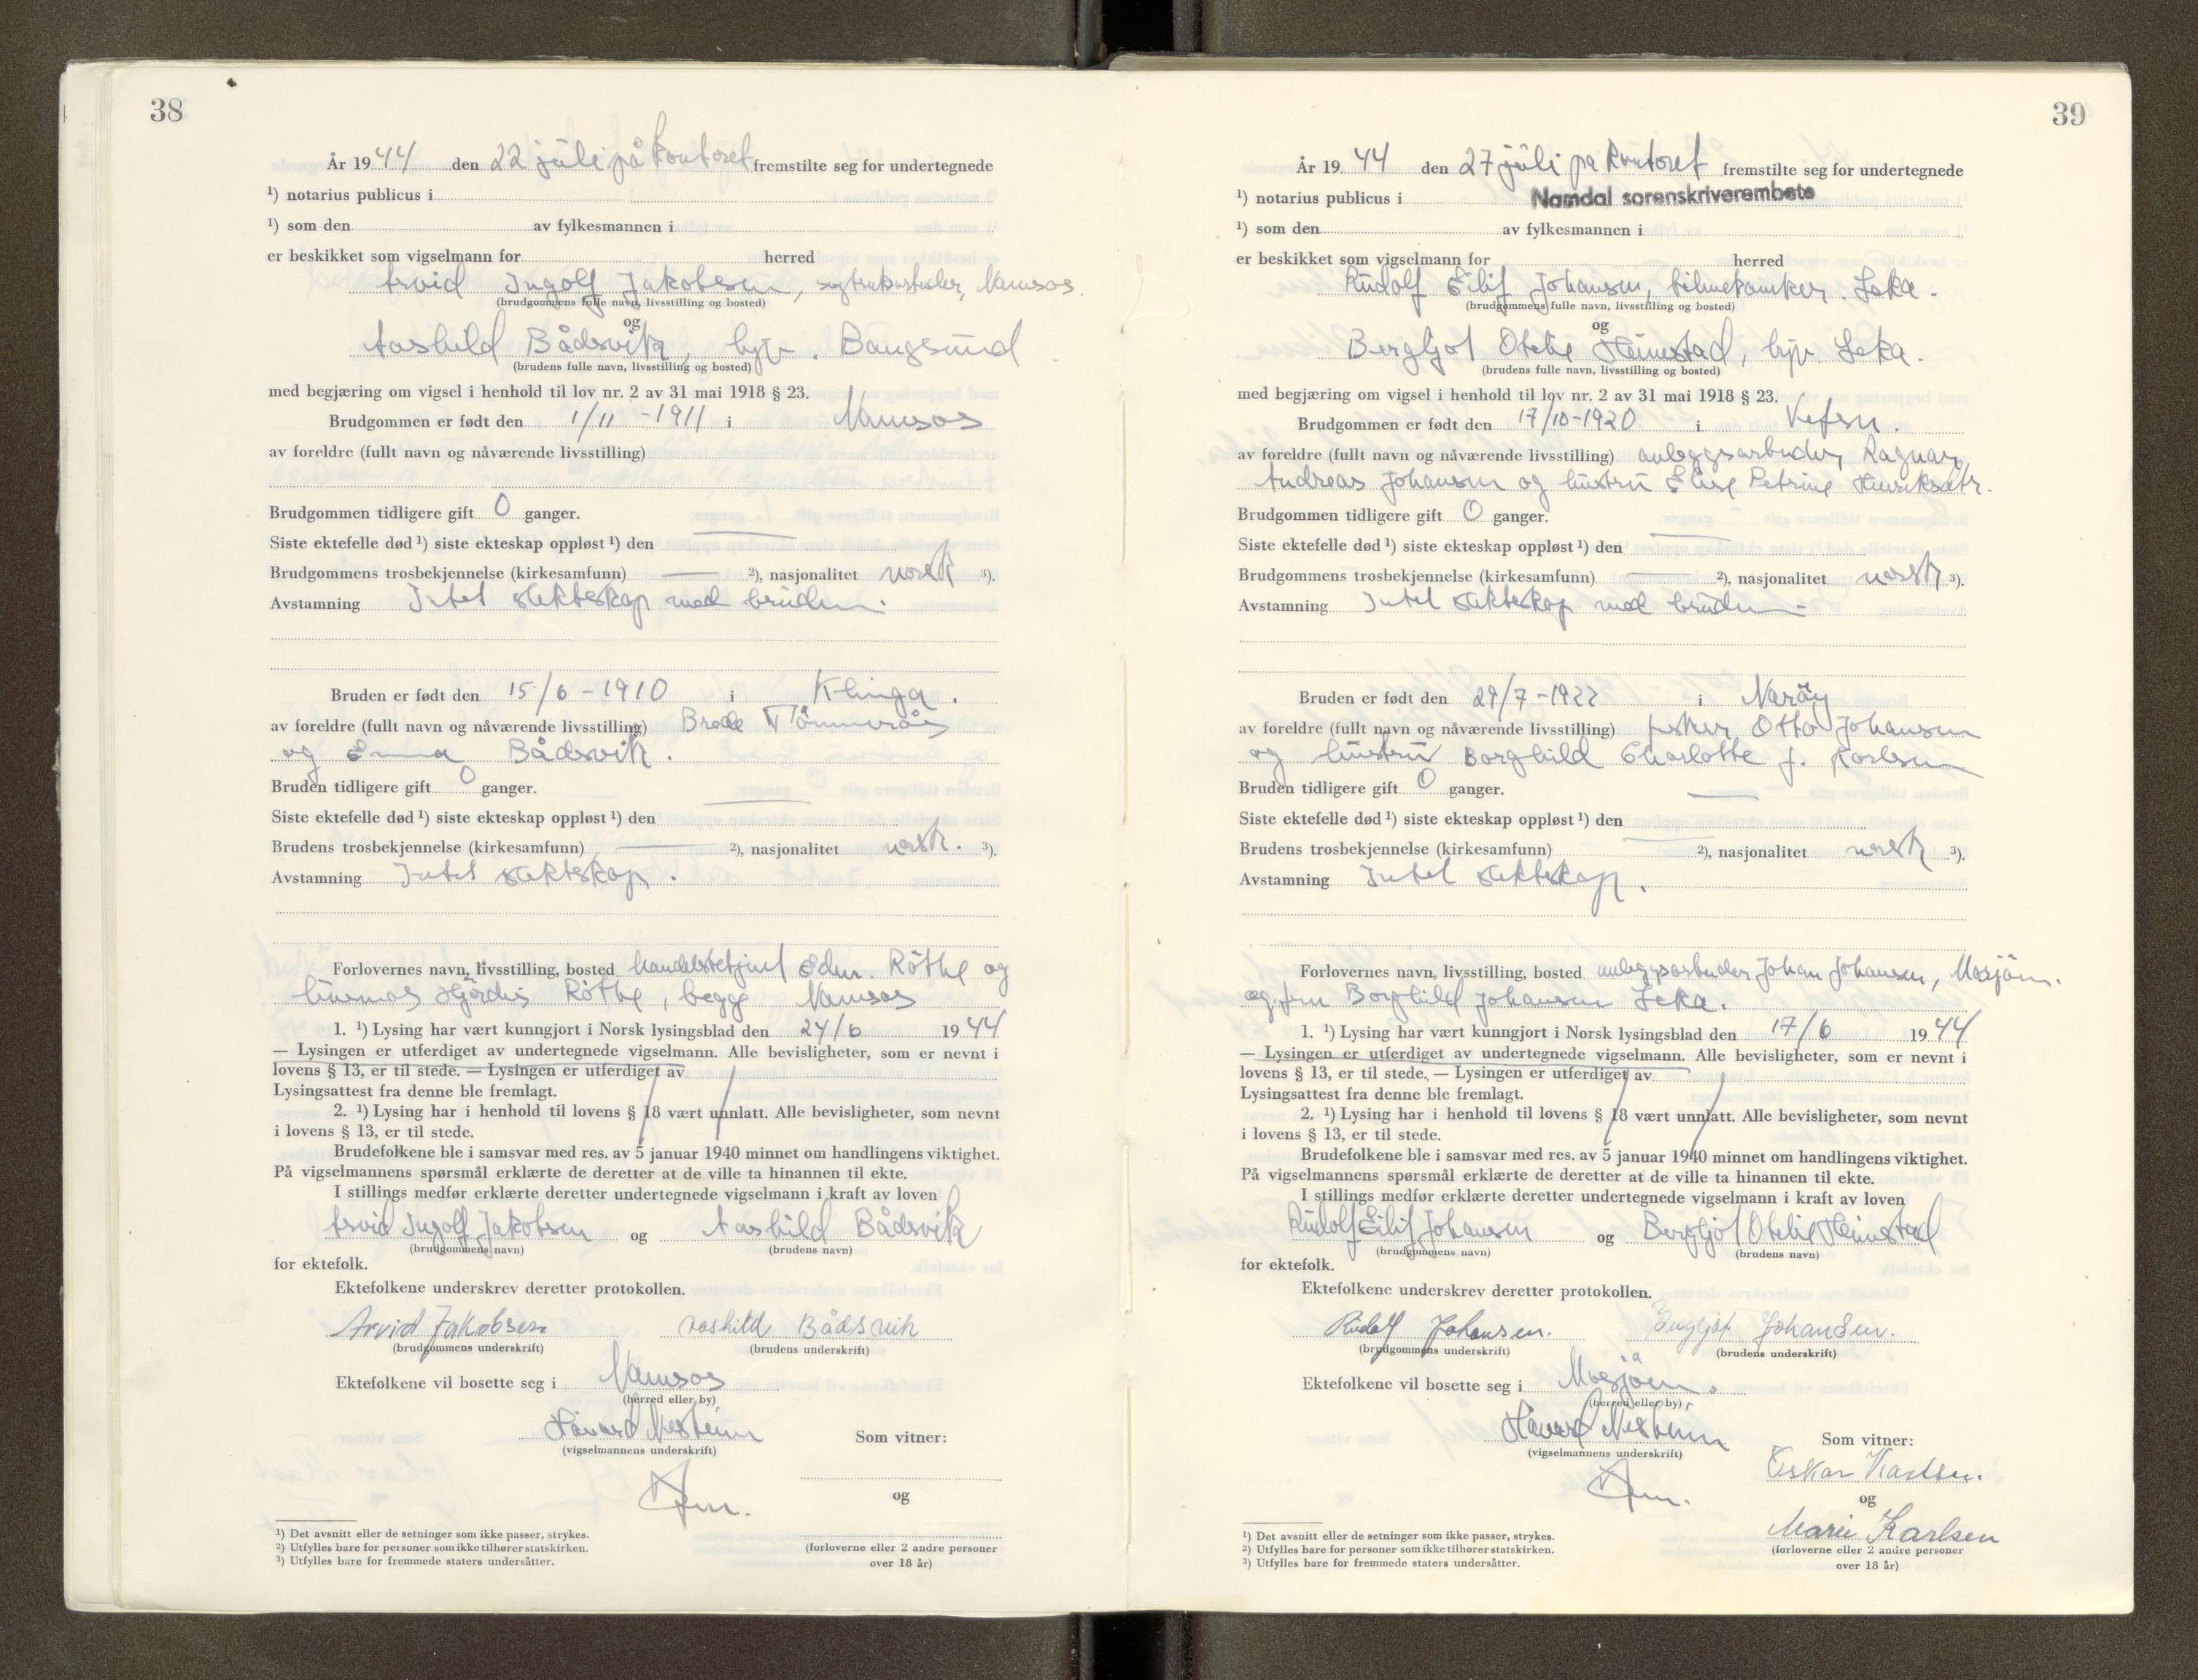 38
År 19 44 den 22 juli på kontoret fremstilte seg for undertegnede
¹) notarius publicus i
¹) som den av fylkesmannen i
er beskikket som vigselmann for herred
Arvid Ingolf Jakobsen, Namsos.
(brudgommens fulle navn, livsstilling og bosted)
og
Aashild Bådsvik, hjv. Bangsund
(brudens fulle navn, livsstilling og bosted)
med begjæring om vigsel i henhold til lov nr. 2 av 31 mai 1918 § 23.
Brudgommen er født den 1/11 - 1911 i Namsos
av foreldre (fullt navn og nåværende livsstilling)
Brudgommen tidligere gift 0 ganger.
Siste ektefelle død ¹) siste ekteskap oppløst ¹) den —
Brudgommens trosbekjennelse (kirkesamfunn) — ²), nasjonalitet norsk ³).
Avstamning Intet slektskap med bruden.
Bruden er født den 15/6 - 1910 i Klinga.
av foreldre (fullt navn og nåværende livsstilling) Brede Tömmerås
og Emma Bådsvik.
Bruden tidligere gift 0 ganger.
Siste ektefelle død ¹) siste ekteskap oppløst ¹) den —
Brudens trosbekjennelse (kirkesamfunn) — ²), nasjonalitet norsk. ³).
Avstamning Intet slektskap.
Forlovernes navn, livsstilling, bosted handelsbetjent Edm. Röthe og
husmor Hjördis Röthe, begge Namsos
1. ¹) Lysing har vært kunngjort i Norsk lysingsblad den 24/6 19 44
— Lysingen er utferdiget av undertegnede vigselmann. Alle bevisligheter, som er nevnt i
lovens § 13, er til stede. — Lysingen er utferdiget av
Lysingsattest fra denne ble fremlagt.
2. ¹) Lysing har i henhold til lovens § 18 vært unnlatt. Alle bevisligheter, som nevnt
i lovens § 13, er til stede.
Brudefolkene ble i samsvar med res. av 5 januar 1940 minnet om handlingens viktighet.
På vigselmannens spørsmål erklærte de deretter at de ville ta hinannen til ekte.
I stillings medfør erklærte deretter undertegnede vigselmann i kraft av loven
Arvid Ingolf Jakobsen og Aashild Bådsvik
(brudgommens navn) (brudens navn)
for ektefolk.
Ektefolkene underskrev deretter protokollen.
Arvid Jakobsen Aashild Bådsvik
(brudgommens underskrift) (brudens underskrift)
Ektefolkene vil bosette seg i Namsos
(herred eller by)
Håvard Nesheim
(vigselmannens underskrift)
Som vitner:
og
¹) Det avsnitt eller de setninger som ikke passer, strykes.
²) Utfylles bare for personer som ikke tilhører statskirken.
³) Utfylles bare for fremmede staters undersåtter.
(forloverne eller 2 andre personer
over 18 år)
39
År 19 44 den 27 juli på kontoret fremstilte seg for undertegnede
¹) notarius publicus i Namdal sorenskriverembete
¹) som den av fylkesmannen i
er beskikket som vigselmann for herred
Rudolf Eilif Johansen, Leka.
(brudgommens fulle navn, livsstilling og bosted)
og
Bergljot Otelie Heimstad, hjv. Leka.
(brudens fulle navn, livsstilling og bosted)
med begjæring om vigsel i henhold til lov nr. 2 av 31 mai 1918 § 23.
Brudgommen er født den 17/10-1920 i Vefsn.
av foreldre (fullt navn og nåværende livsstilling) anleggsarbeider Ragnar
Andreas Johansen og hustru Elise Petrine Henriksdtr.
Brudgommen tidligere gift 0 ganger.
Siste ektefelle død ¹) siste ekteskap oppløst ¹) den —
Brudgommens trosbekjennelse (kirkesamfunn) — ²), nasjonalitet norsk ³).
Avstamning Intet slektskap med bruden
Bruden er født den 29/7 - 1922 i Naröy
av foreldre (fullt navn og nåværende livsstilling) fisker Otto Johansen
og hustru Borghild Charlotte f. Karlsen
Bruden tidligere gift 0 ganger.
Siste ektefelle død ¹) siste ekteskap oppløst ¹) den —
Brudens trosbekjennelse (kirkesamfunn) — ²), nasjonalitet norsk ³).
Avstamning Intet slektskap.
Forlovernes navn, livsstilling, bosted anleggsarbeider Johan Johansen, Mosjöen.
og fru Borghild Johansen Leka.
1. ¹) Lysing har vært kunngjort i Norsk lysingsblad den 17/6 19 44
— Lysingen er utferdiget av undertegnede vigselmann. Alle bevisligheter, som er nevnt i
lovens § 13, er til stede. — Lysingen er utferdiget av
Lysingsattest fra denne ble fremlagt.
2. ¹) Lysing har i henhold til lovens § 18 vært unnlatt. Alle bevisligheter, som nevnt
i lovens § 13, er til stede.
Brudefolkene ble i samsvar med res. av 5 januar 1940 minnet om handlingens viktighet.
På vigselmannens spørsmål erklærte de deretter at de ville ta hinannen til ekte.
I stillings medfør erklærte deretter undertegnede vigselmann i kraft av loven
Rudolf Eilif Johansen og Bergljot Otelie Heimstad
(brudgommens navn) (brudens navn)
for ektefolk.
Ektefolkene underskrev deretter protokollen.
Rudolf Johansen. Johansen.
(brudgommens underskrift) (brudens underskrift)
Ektefolkene vil bosette seg i Mosjöen.
(herred eller by)
Håvard Nesheim
(vigselmannens underskrift)
Som vitner:
Karlsen.
og
Marie Karlsen
¹) Det avsnitt eller de setninger som ikke passer, strykes.
²) Utfylles bare for personer som ikke tilhører statskirken.
³) Utfylles bare for fremmede staters undersåtter.
(forloverne eller 2 andre personer
over 18 år)